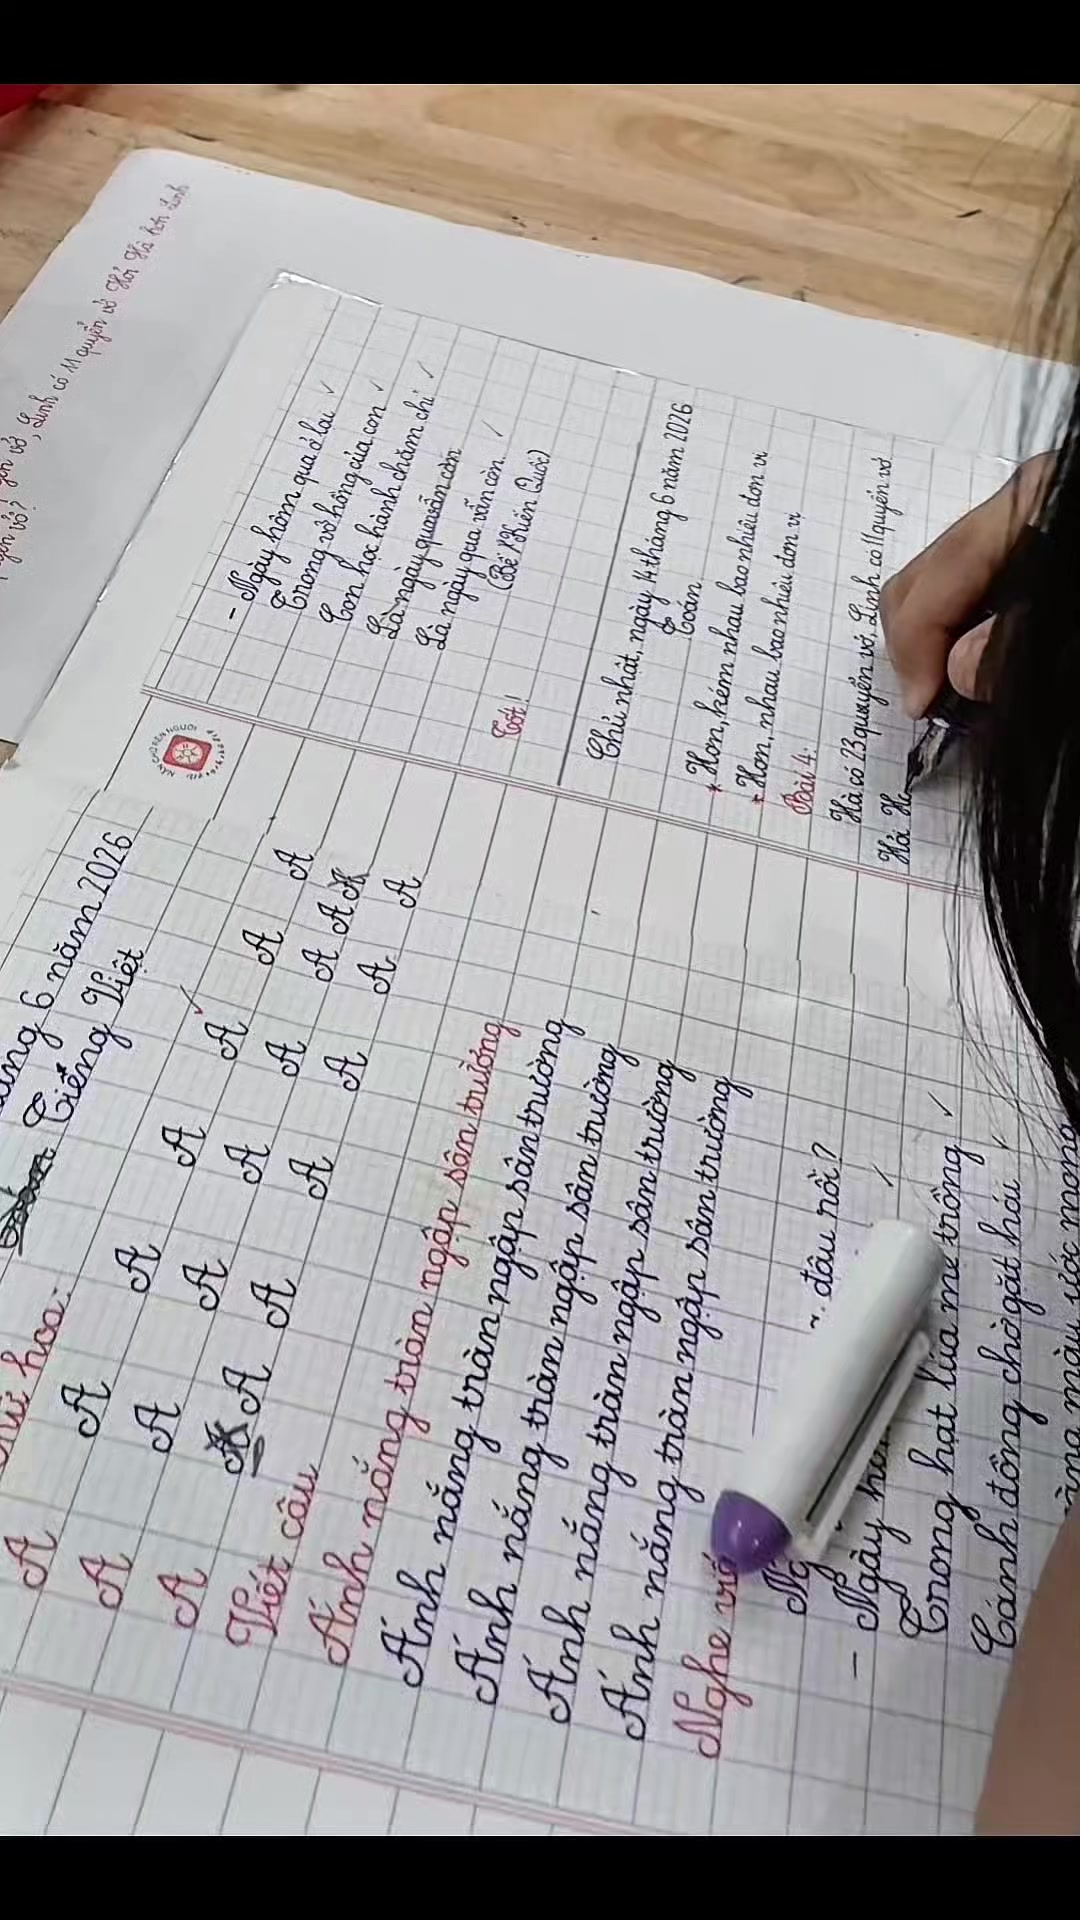 vở, Linh có 11 quyển vở Hỏi Hà hơn Linh
vở?
6 năm 2026
Tiếng Việt
hoa:
A A A A A A A
A A A A A A A
A A A A A A
Viết câu
Ánh nắng tràn ngập sân trường
Ánh nắng tràn ngập sân trường
Ánh nắng tràn ngập sân trường
Ánh nắng tràn ngập sân trường
Ánh nắng tràn ngập sân trường
Nghe
đâu rồi?
- Ngày
Trong hạt lúa mẹ trồng
Cánh đồng chờ gặt hái
màu ước mong
- Ngày hôm qua ở lại
Trong vở hồng của con
Con học hành chăm chỉ
Là ngày qua vẫn còn
Là ngày qua vẫn còn.
(Bế Kiến Quốc)
Tốt!
Chủ nhật, ngày 14 tháng 6 năm 2026
Toán
* Hơn, kém nhau bao nhiêu đơn vị
* Hơn, nhau bao nhiêu đơn vị
Bài 4:
Hà có 23 quyển vở, Linh có 11 quyển vở
Hỏi